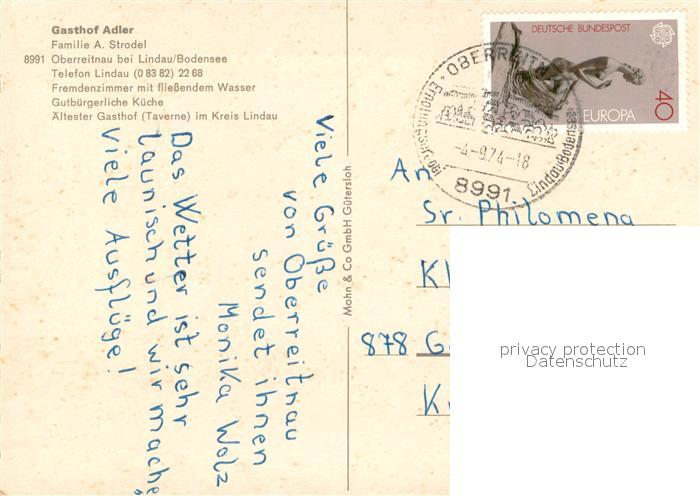 Gasthof Adler
Familie A. Strodel
8991 Oberreitnau bei Lindau/Bodensee
Telefon Lindau (0 83 82) 22 68
Fremdenzimmer mit fließendem Wasser
Gutbürgerliche Küche
Ältester Gasthof (Taverne) im Kreis Lindau
Viele Grüße
von Oberreitnau
sendet ihnen
Monika Walz
Das Wetter ist sehr
launisch und wir mache,
viele Ausflüge!
Mohn & Co GmbH Gütersloh
DEUTSCHE BUNDESPOST
EUROPA
40
OBERREIT
-4-9.74-18
8991
Lindau(Bodensee)
An
Sr. Philomena
Kl
878 G
K
privacy protection
Datenschutz